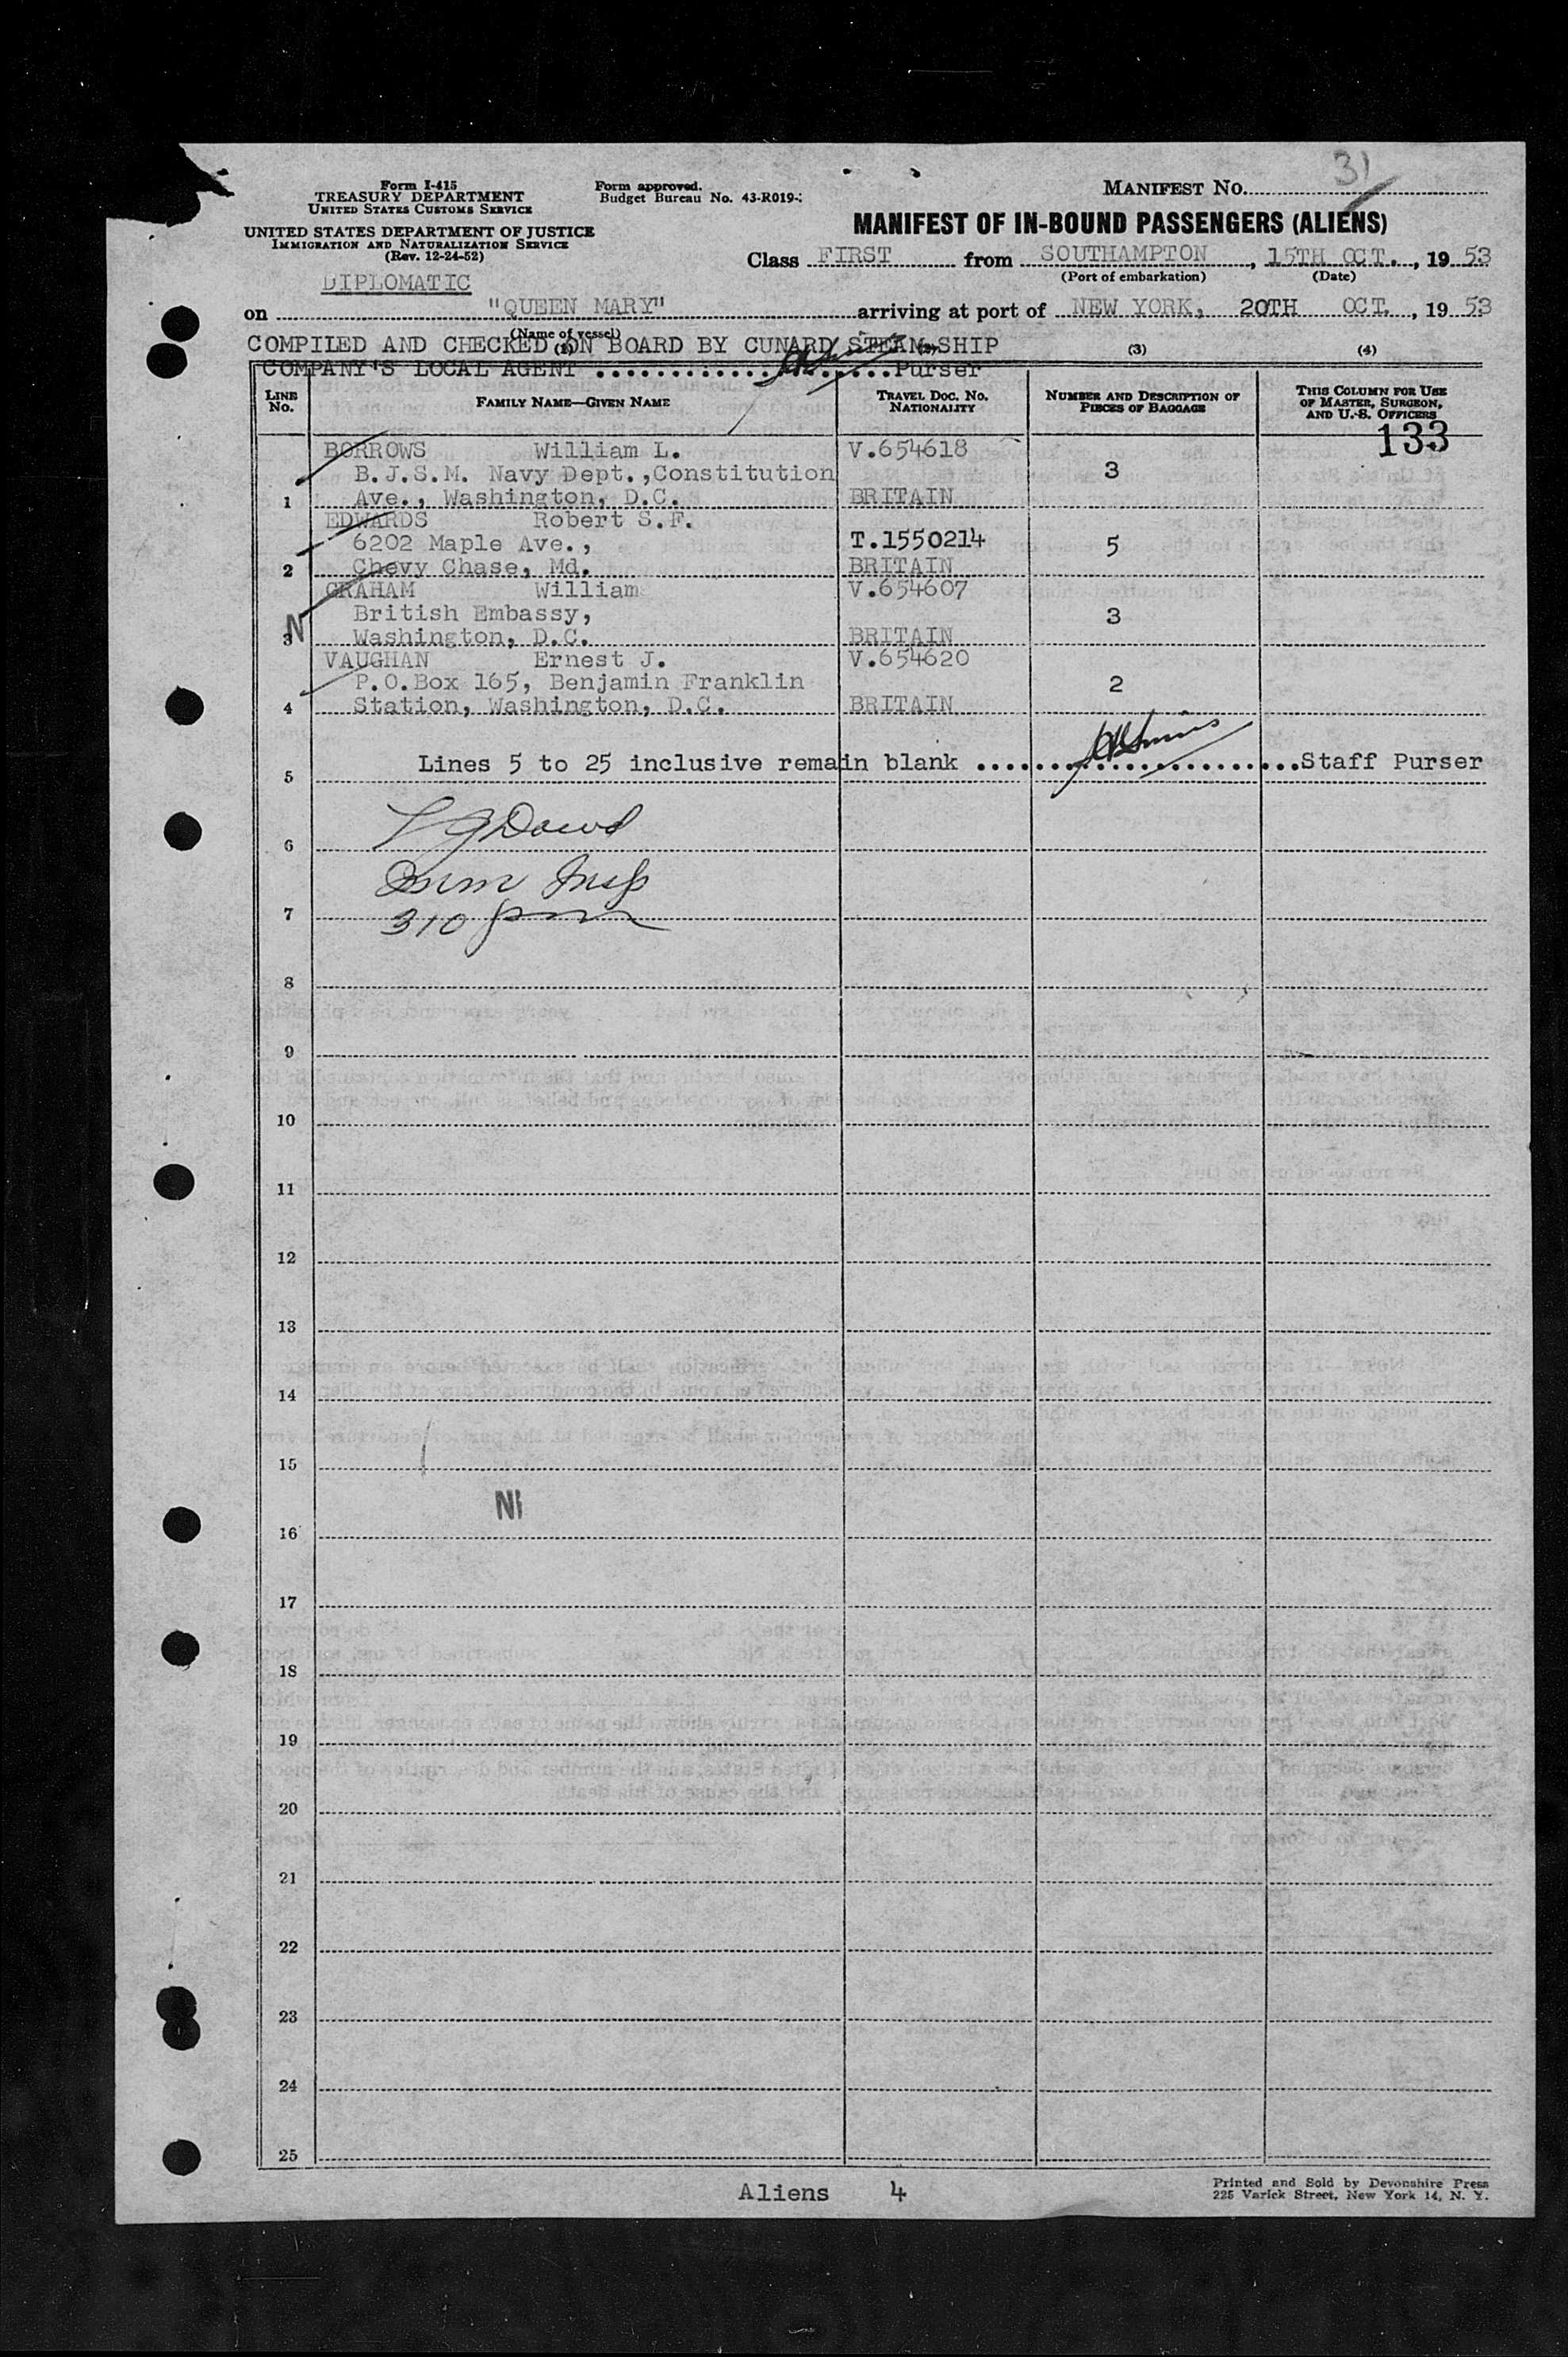 31
Form I-415
TREASURY DEPARTMENT
UNITED STATES CUSTOMS SERVICE
Form approved.
Budget Bureau No. 43-R019-
MANIFEST No.
UNITED STATES DEPARTMENT OF JUSTICE
IMMIGRATION AND NATURALIZATION SERVICE
(Rev. 12-24-52)
MANIFEST OF IN-BOUND PASSENGERS (ALIENS)
Class FIRST from SOUTHAMPTON, 15TH OCT., 19 53
(Port of embarkation) (Date)
DIPLOMATIC
on "QUEEN MARY" arriving at port of NEW YORK, 20TH OCT., 19 53
(Name of vessel)
COMPILED AND CHECKED ON BOARD BY CUNARD STEAM-SHIP
(1) (2) (3) (4)
COMPANY'S LOCAL AGENT ........................Purser
LINE No. FAMILY NAME—GIVEN NAME TRAVEL DOC. No. NATIONALITY NUMBER AND DESCRIPTION OF PIECES OF BAGGAGE THIS COLUMN FOR USE OF MASTER, SURGEON, AND U. S. OFFICERS
133
BORROWS William L. V.654618
B.J.S.M. Navy Dept.,Constitution 3
1 Ave., Washington, D.C. BRITAIN
EDWARDS Robert S.F.
6202 Maple Ave., T.1550214 5
2 Chevy Chase, Md. BRITAIN
GRAHAM William V.654607
British Embassy, 3
N
3 Washington, D.C. BRITAIN
VAUGHAN Ernest J. V.654620
P.O.Box 165, Benjamin Franklin 2
4 Station, Washington, D.C. BRITAIN
5 Lines 5 to 25 inclusive remain blank ........................Staff Purser
6
Imm Insp
7
310 pm
8
9
10
11
12
13
14
15
NI
16
17
18
19
20
21
22
23
24
25
Aliens 4
Printed and Sold by Devonshire Press
225 Varick Street, New York 14, N. Y.